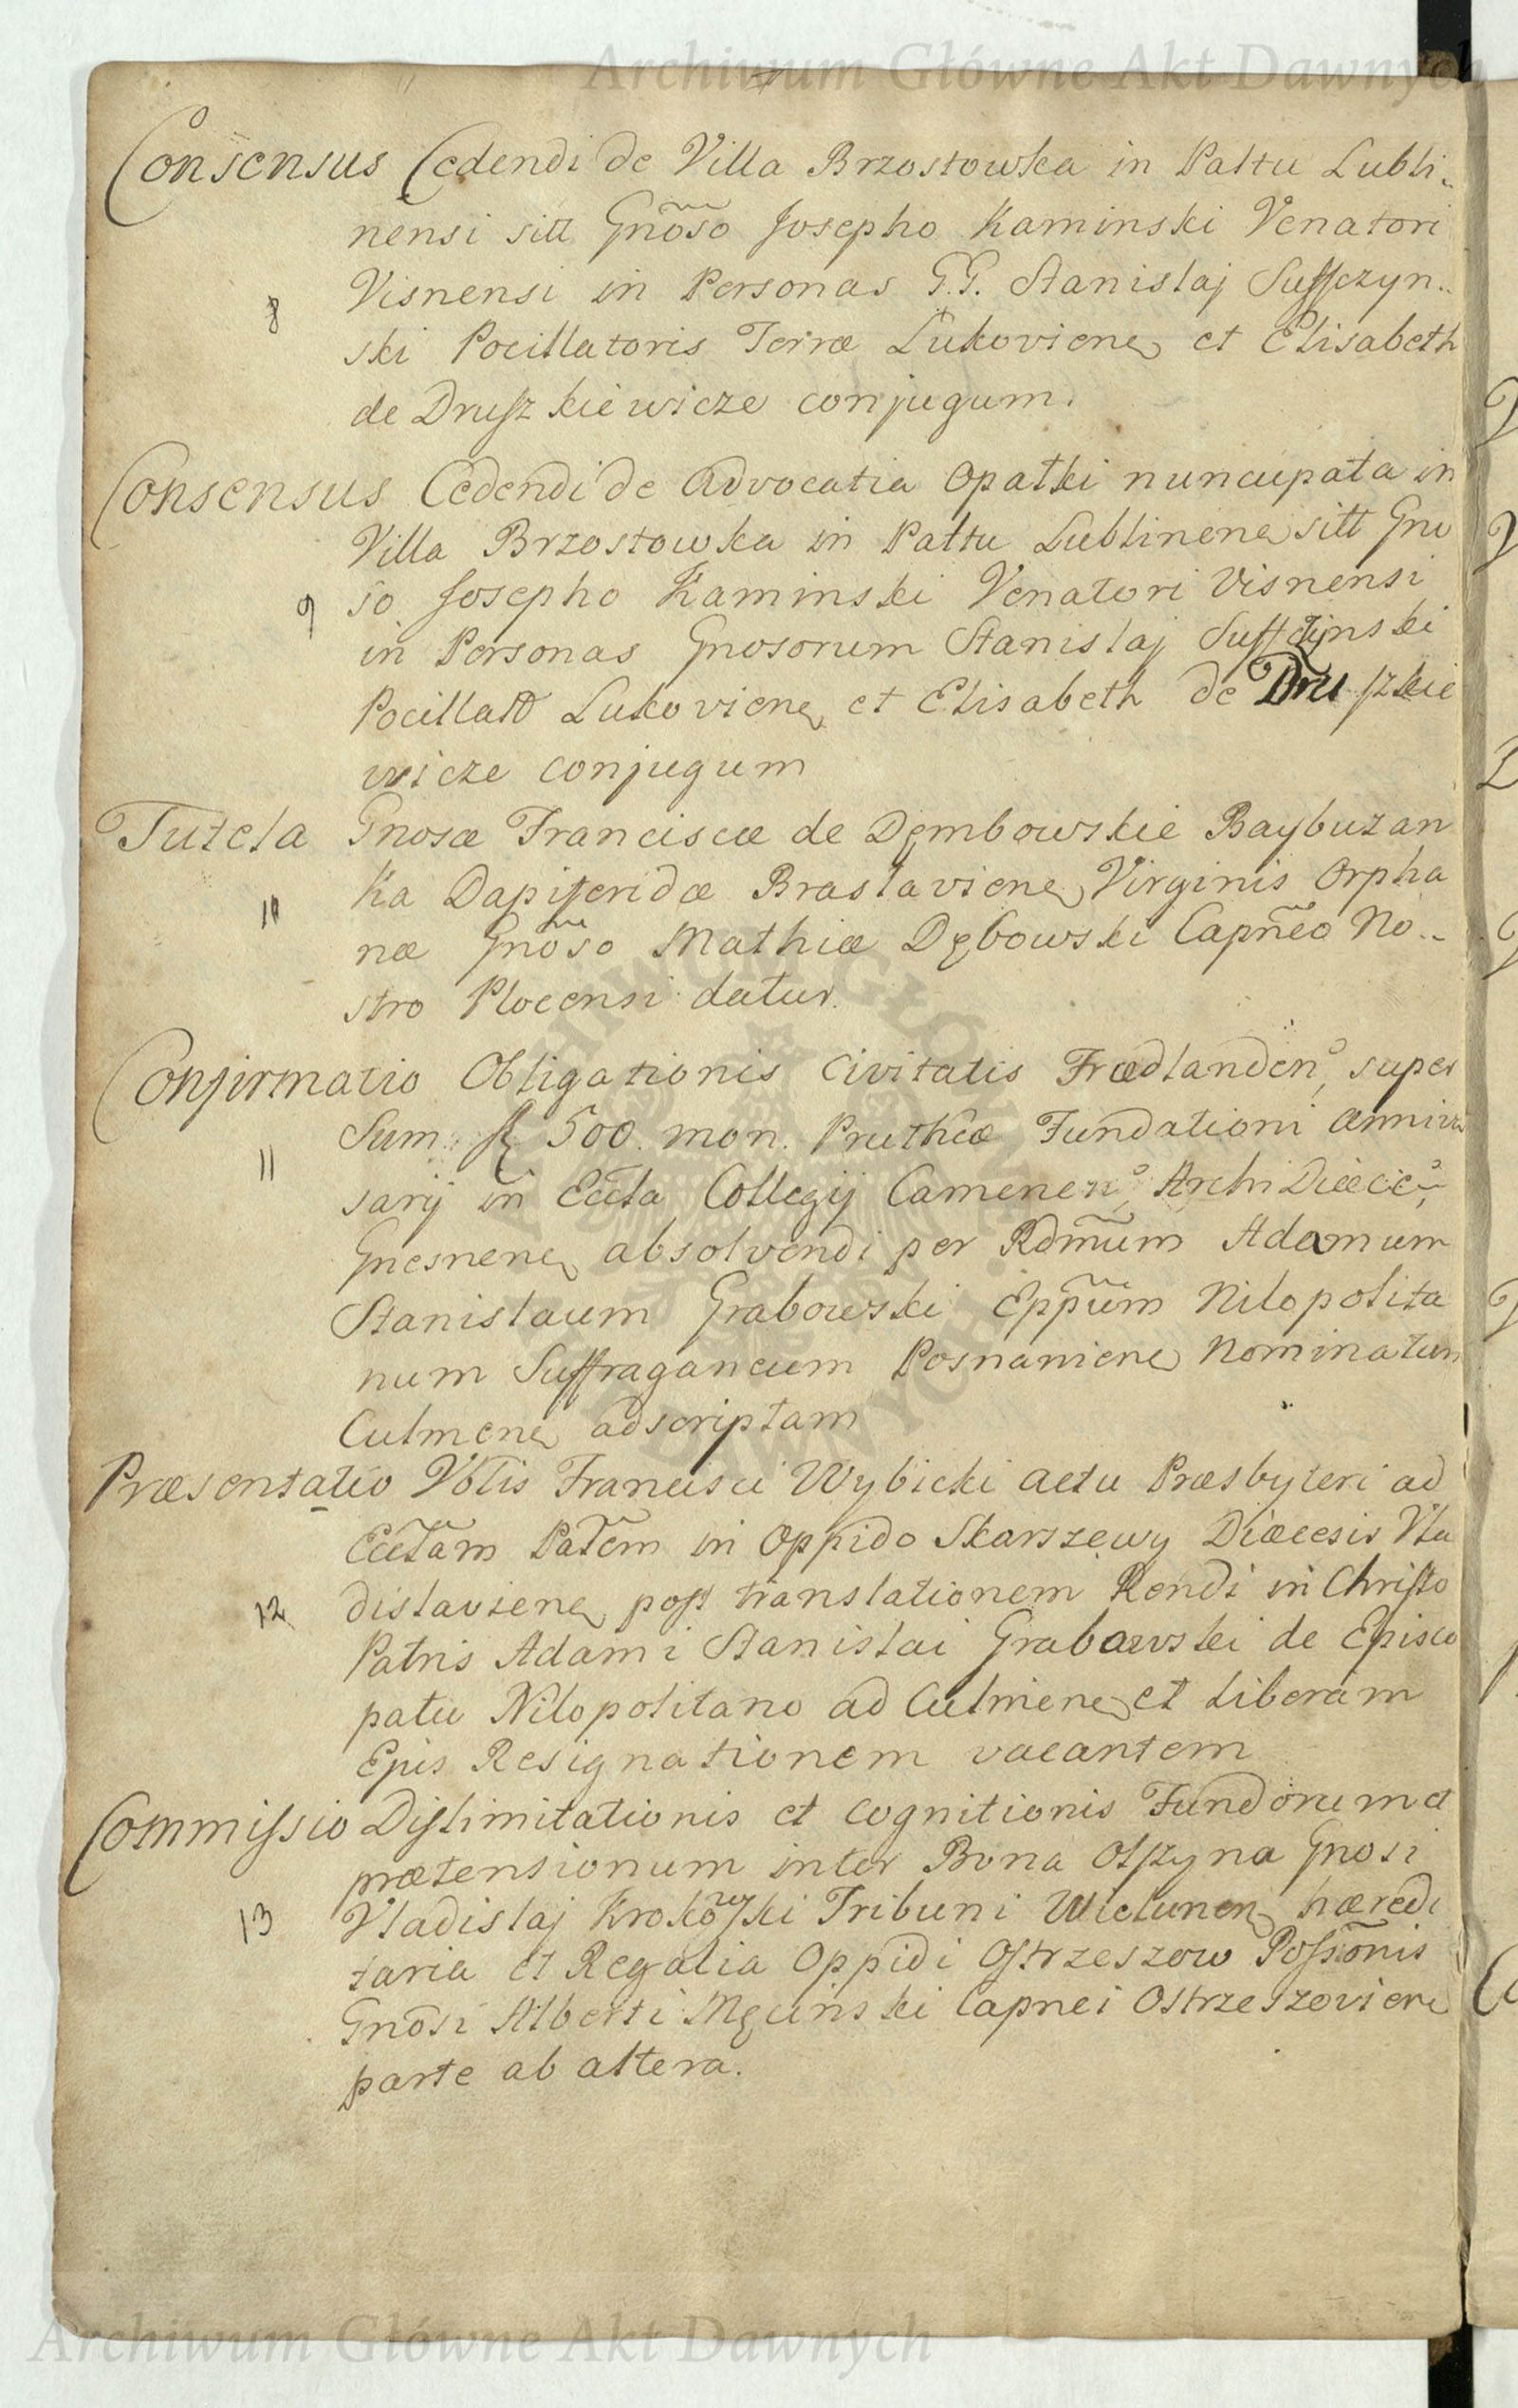 Archiwum Główne Akt Dawnych
Consensus Cedendi de Villa Brzostowka in Palttu Lubli-
nensi sitt Gnõso Josepho Kaminski Venatori
8
Visnensi in Personas G.G. Stanislaj Suffczyn-
ski Pocillatoris Terræ Lukoviene et Elisabeth
de Druszkiewicze conjugum.
Consensus Cedendi de Advocatia Opatki nuncupata in
Villa Brzostowka in Palttu Lublinene sitt Gno
9
so Josepho Kaminski Venatori Visnensi
in Personas Gnosorum Stanislaj Suffczynski
Pocillato Lukoviene et Elisabeth de Druszkie
wicze conjugum
Tutela Gnosæ Franciscæ de Dęmbowskie Baybuzan
10
ka Dapiferidæ Braslaviene Virginis Orpha
næ Gnõso Mathiæ Dębowski Capñeo No-
stro Plocensi datur.
Confirmatio Obligationis Civitatis Frædlanden, super
11
Sum. fl 500. mon. Pruthcæ Fundationi Anniver
sarij in Eccla Collegij Camenen, Archi Diæce,
Gnesnene absolvendi per Rdm̃um Adamum
Stanislaum Grabowski Epp̃um Nilopolita
num Suffraganeum Posnaniene Nominatum
Culmene adscriptam
Præsentatio Vblis Francisci Wybicki actu Præsbyteri ad
Ecclãm Palẽm in Oppido Skarszewy Diæcesis Vla
12
dislaviene post translationem Rendi in Christo
Patris Adami Stanislai Grabowski de Episco
patu Nilopolitano ad Culmene et liberam
Ejus Resignationem vacantem
Commissio Dislimitationis et cognitionis Fundorum et
prætensionum inter Bona Olszyna Gnosi
13
Vladislaj Krokowski Tribuni Wielunen hæredi
taria et Regalia Oppidi Ostrzeszow Possionis
Gnosi Alberti Męcinski Capnei Ostrzeszoviene
parte ab altera.
Archiwum Główne Akt Dawnych